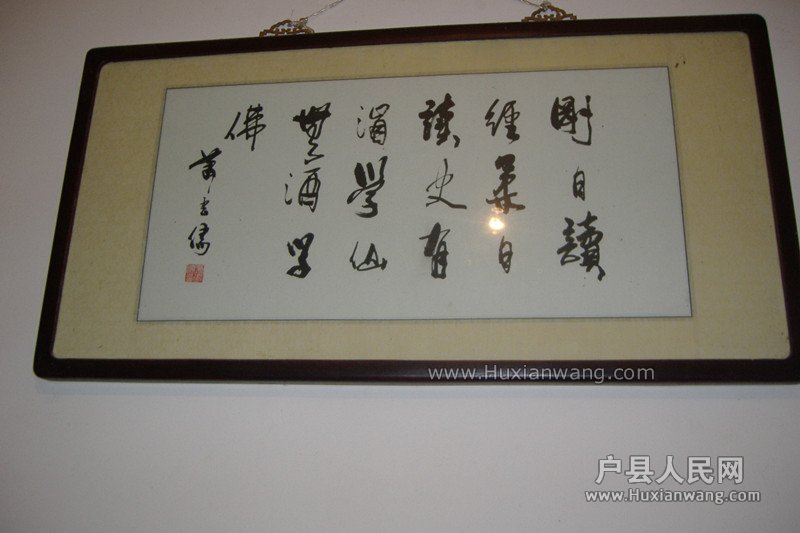 剛日讀
經柔日
讀史有
酒學仙
無酒学
佛
www.Huxianwang.com
户县人民网
www.Huxianwang.com